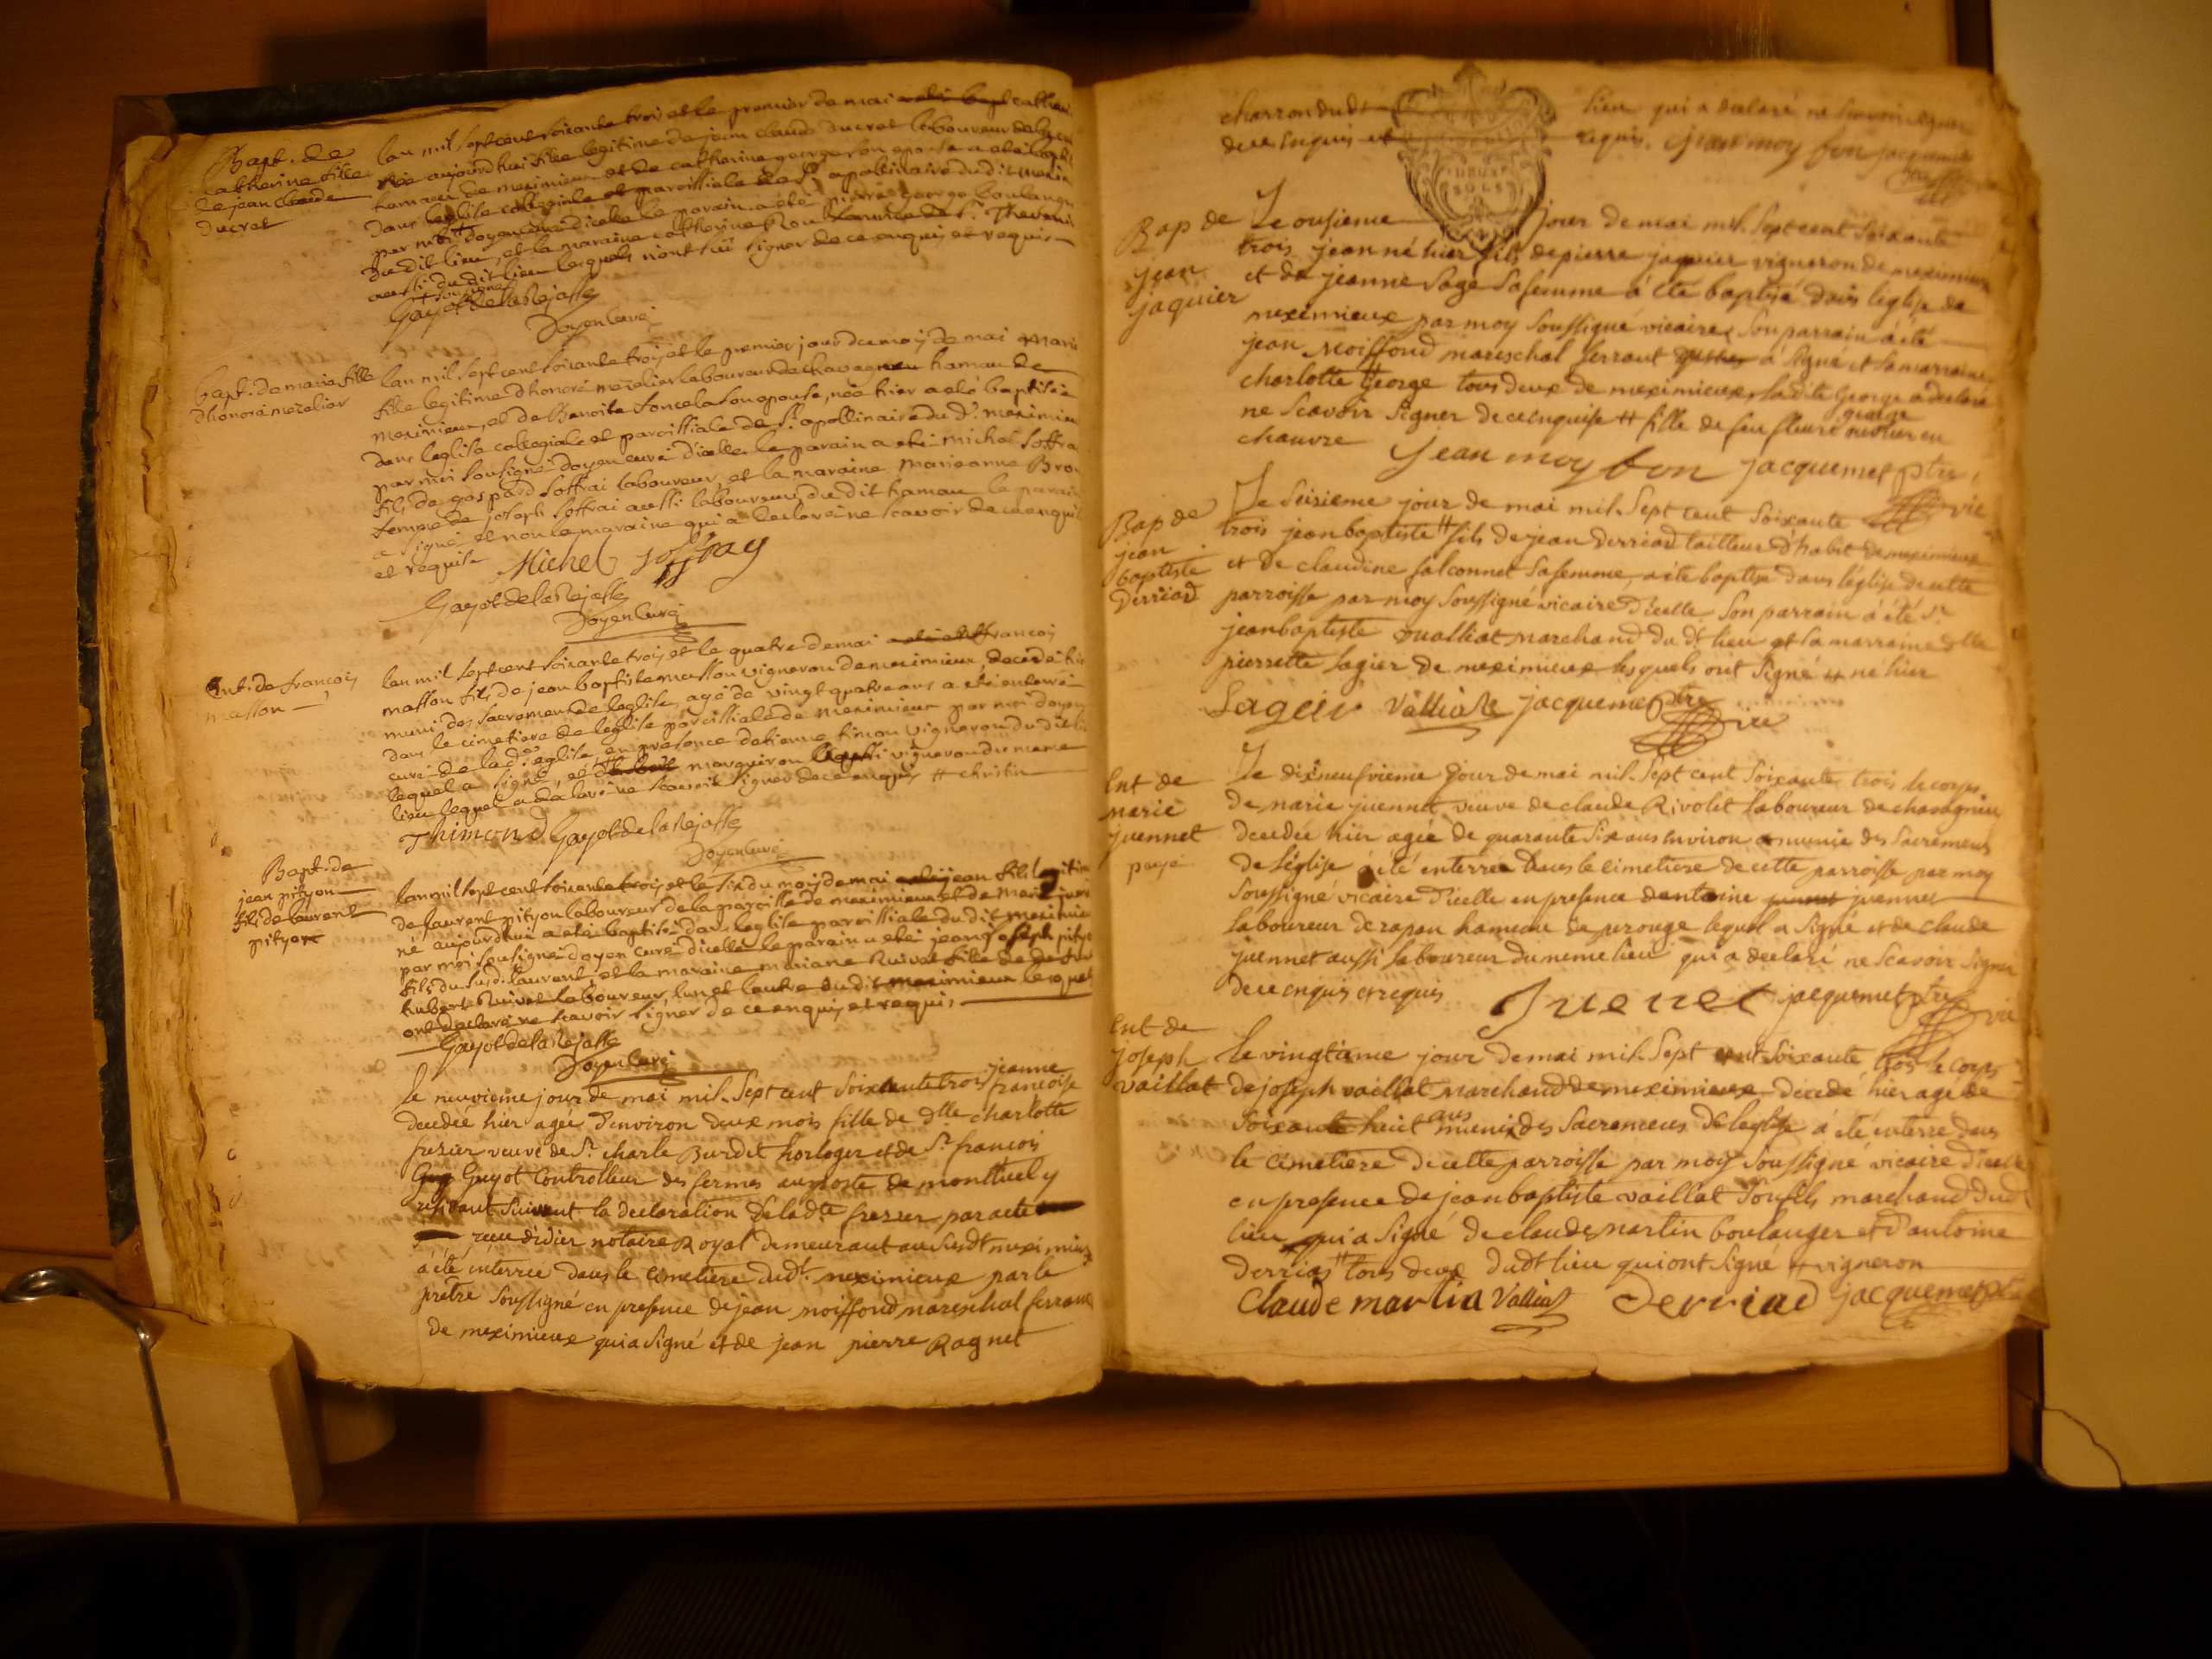 Bapt. de
catherine fille
de jean claude
ducret
lan mil sept cent soixante trois et le premier de mai a été bapt catherine
née aujourdhui fille legitime de jean claude ducret laboureur de
hameau de meximieux et de catherine george son epouse a été baptisée
dans leglise collegiale et paroissiale de St apolinaire du dit meximieux
par moi doyen curé dicelle le parain a été pierre george boulanger
du dit lieu, et la maraine catherine Thevenin
aussi du dit lieu lesquels n'ont scu signer de ce enquis et requis
+ sousigné
Gayot de la Rejasse
Doyen Curé
bapt. de marie fille
dhonoré mezelier
lan mil sept cent soixante trois et le premier jour du mois de mai marie
fille legitime dhonoré mezelier laboureur de chavagneu hamau de
meximieux, et de Benoite soncela son epouse, née hier a été baptisée
dans leglise collegiale et paroissiale de St. apollinaire du dt. meximieux
par moi sousigné doyen curé d'icelle le parain a été michel soffrai
fils de gaspard soffrai laboureur, et la maraine marieanne
femme de joseph soffrai aussi laboureur du dit hamau le parain
a signé et non la maraine qui a declaré ne scavoir de ce enquise
et requise
Michel Soffray
Gayot de la Rejasse
Doyen Curé
Ent. de francois
masson
lan mil sept cent soixante trois et le quatre de mai a été francois
masson fils de jean baptiste masson vigneron de meximieux decedé hier
muni des sacremens de leglise, agé de vingt quatre ans a été enterré
dans le cimetiere de leglise paroissiale de meximieux par moi doyen
curé de lad. eglise en presence detienne timon vigneron du dit lieu
lequel a signé, et de marguiron aussi vigneron du meme
lieu lequel a declaré ne scavoir signer de ce enquis # christin
Thimond Gayot de la Rejasse
Doyen Curé
Bapt. de
jean pityon
fils de laurent
pityon
lan mil sept cent soixante trois et le six du mois de mai a été jean fils legitime
de laurent pityon laboureur de la paroisse de meximieux et de marie
né aujourdhui a été baptisé dans leglise paroissiale du dit meximieux
par moi sousigné doyen curé dicelle le parain a été jean joseph pityon
fils du susd. laurent, et la maraine mariane Ruivat fille de
hubert Ruivat laboureur lun et lautre du dit meximieux lesquels
ont declaré ne scavoir signer de ce enquis et requis
Gayot de la Rejasse
Doyen Curé
le neuvieme jour de mai mil sept cent soixante trois jeanne francoise
decedée hier agée d'environ deux mois fille de dlle charlotte
fresier veuve de Sr. charle Burdet horloger et de Sr. francois
Guyot controlleur des fermes au poste de montluel y
residant suivant la declaration de lad.te fresier par acte
recu didier notaire Royal demeurant au susdt meximieux
a été interrée dans le cimetiere dudt. meximieux par le
prêtre soussigné en presence de jean moiffond mareschal ferrant
de meximieux qui a signé et de jean pierre Ragnet
charron dudt lieu qui a declaré ne scavoir signer
de ce enquis et requis. jean moy fon jacquemet
Bap de
jean
jaquier
Le onsieme jour de mai mil sept cent soixante
trois jean né hier fils de pierre jaquier vigneron de meximieux
et de jeanne sage sa femme à été baptisé dans l'eglise de
meximieux par moy soussigné vicaire, son parrain à été
jean moiffond mareschal ferrant a signé et sa marraine
charlotte George tous deux de meximieux, ladite George a declaré
ne scavoir signer de ce enquise # fille de feu fleuri george
chauvre
jean moy fon jacquemet ptre
vic
Bap de
jean
baptiste
Derriad
Le seisieme jour de mai mil sept cent soixante
trois jean baptiste # fils de jean derriad tailleur d'habit de meximieux
et de claudine falconnet sa femme, a été baptisé dans l'église de cette
parroisse par moy soussigné vicaire d'icelle son parrain à été Sr.
jean baptiste vualliat marchand du dt. lieu et sa marraine dlle
pierrette sagier de meximieux lesquels ont signé # né hier
Sagier Valliat jacquemet ptre
vic
Ent de
marie
juennet
payé
Le dixneufvieme jour de mai mil sept cent soixante trois le corps
de marie juennet veuve de claude Rivolet laboureur de chavagnieu
decedée hier agée de quarante six ans environ munie des sacremens
de l'église à été interrée dans le cimetiere de cette parroisse par moy
soussigné vicaire d'icelle en presence dentoine juennet
laboureur de rapan hameau de perouge lequel a signé et de claude
juennet aussi laboureur du meme lieu qui a declaré ne scavoir signer
de ce enquis et requis
Juenet jacquemet ptre
vic
Ent de
joseph
vaillat
Le vingtieme jour de mai mil sept cent soixante trois le corps
de joseph vaillat marchand de meximieux decede hier agé de
soixante huit ans munis des sacremens de l'eglise à été interré dans
le cimetiere de cette parroisse par moy soussigné vicaire d'icelle
en presence de jean baptiste vaillat son fils marchand dudt
lieu qui a signé de claude martin boulanger et d'antoine
Derriad # tous deux dudt lieu qui ont signé # vigneron
Claude martin Valliat Derriad jacquemet ptre